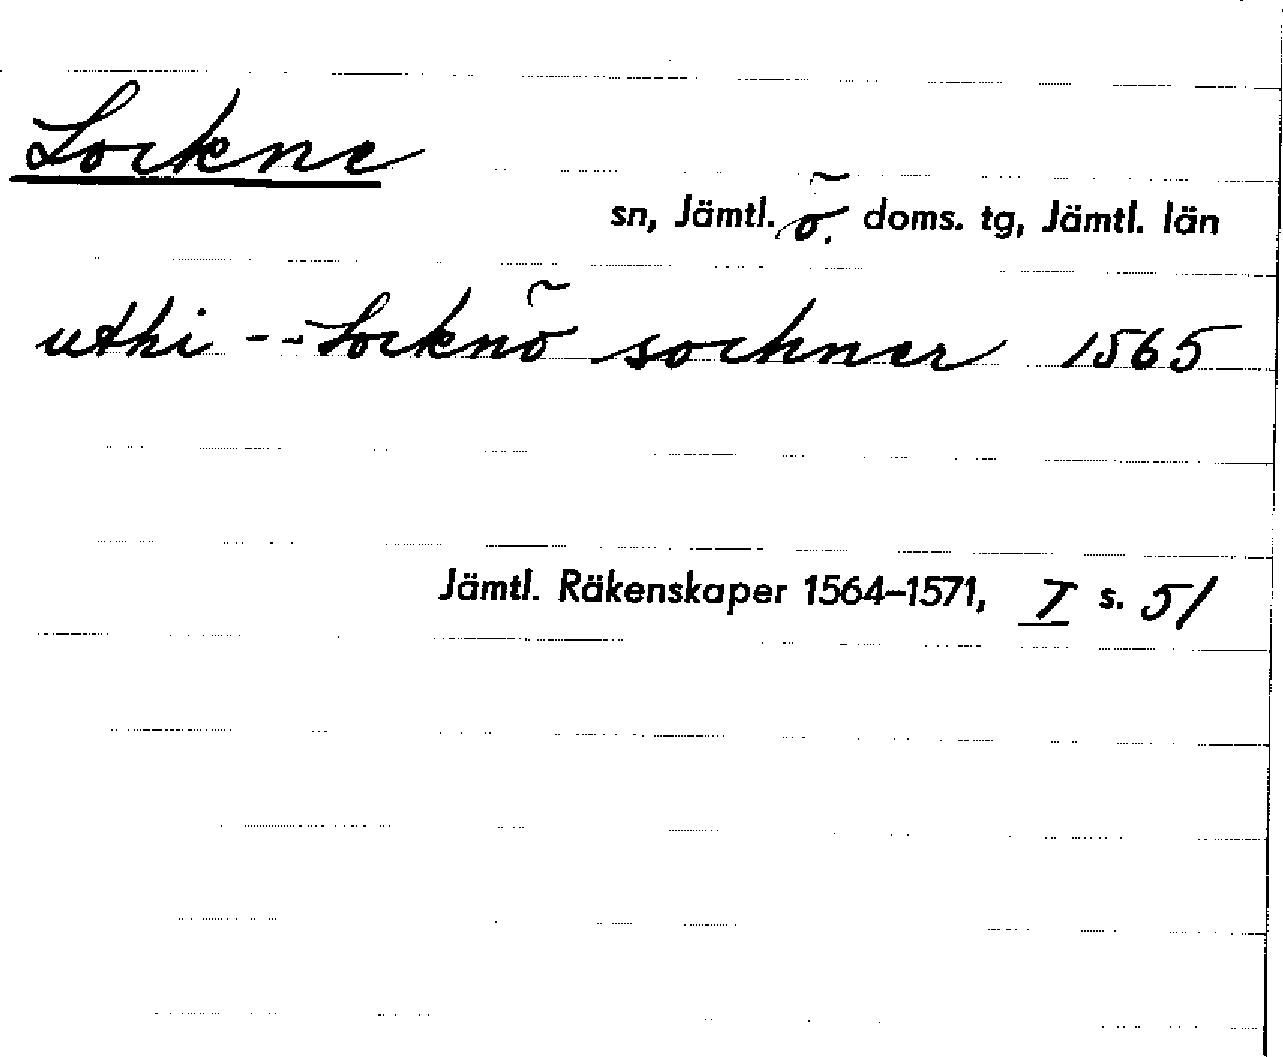 Lockne
sn, Jämtl. ö. doms. tg, Jämtl. län
uthi -- Locknö sochner 1565
Jämtl. Räkenskaper 1564–1571, I s. 51